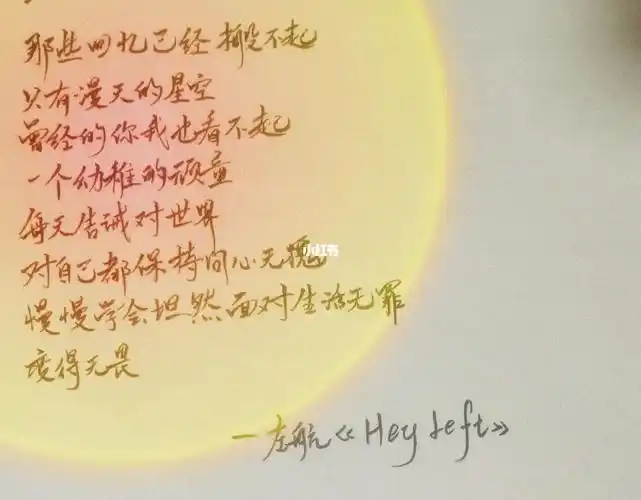 那些回忆已经掀不起
只有漫天的星空
曾经的你我也看不起
一个幼稚的顽童
每天告诫对世界
对自己都保持问心无愧
小红书
慢慢学会坦然面对生活无罪
变得无畏
—左航《Hey left》